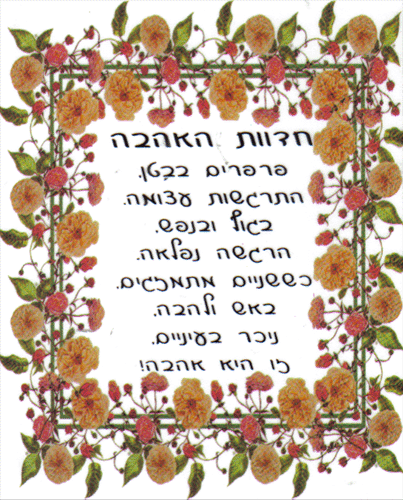 חדוות האהבה
פרפרים בבטן.
התרגשות עצומה.
בגוף ובנפש.
הרגשה נפלאה.
כששניים מתמזגים.
באש ולהבה.
ניכר בעיניים.
זו היא אהבה!